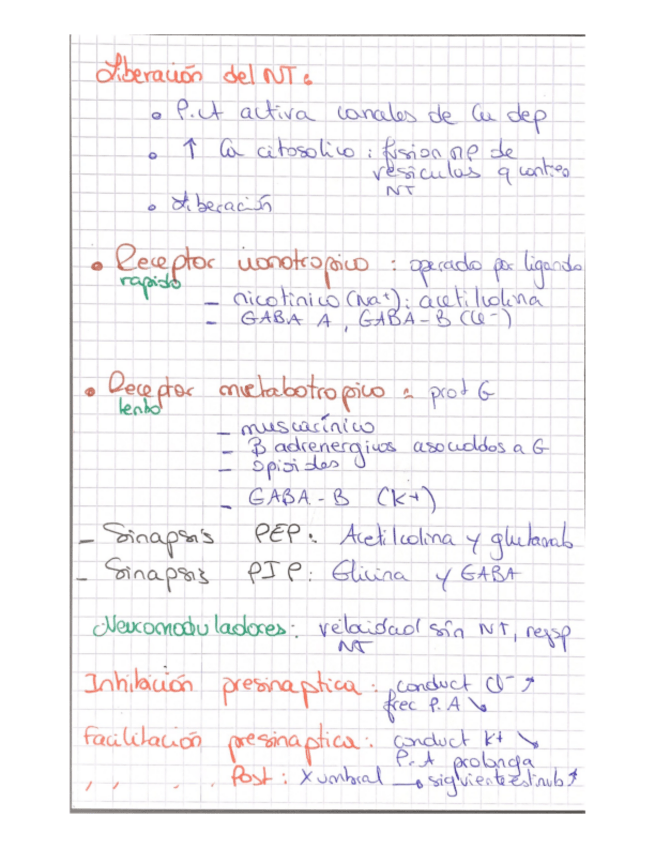 Liberación del NT:
• P.A activa canales de Ca dep
• ↑ Ca citosolico : fusion mp de
vesiculas q contieo
NT
• Liberación
• Receptor ionotropico : operado por ligando
rapido
- nicotinico (Na+): acetilcolina
- GABA A, GABA-B (Cl-)
• Receptor metabotropico : prot G
lento
- muscarínico
- B adrenergicos asociddos a G
- opioides
- GABA-B (K+)
- Sinapsis PEP: Acetilcolina y glutamab
- Sinapsis PIP: Glicina y GABA
Neuromoduladores: velocidad sin NT, resp
NT
Inhibición presinaptica: conduct Cl- ↗
frec P.A ↘
Facilitación presinaptica: conduct K+ ↘
P.A prolonga
, , , , Post: X umbral → siguiente estimb ↑